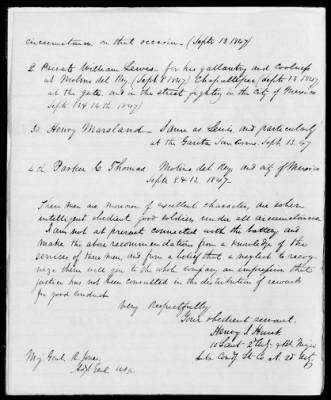 circumstances on that occasion (Septr 13 1847)
2 Private William Lewis for his gallantry and coolness
at Molino del Rey (Sept 8 1847) Chapultepec (Septr 13 1847
at the gate, and in the street fighting in the City of Mexico
Septr 13 & 14th 1847)
3d Henry Marsland – Same as Lewis, and particularly
at the Garita San Cosme Septr 13. 47
4th Parker C Thomas Molino del Rey and city of Mexico
Septr 8 & 13 1847.
These men are moreover of excellent character, are sober
intelligent obedient good soldiers under all circumstances
I am not at present connected with the battery and
make the above recommendations from a knowledge of the
services of these men, and from a belief that a neglect to recog
nize them will give to the whole company an impression that
justice has not been consulted in the distribution of rewards
for good conduct.
Very Respectfully
Your obedient servant.
Henry J Hunt
1st Lieut 2 Arty &
Lt Co A 2d
My Genl R Jones
Adjt Genl USA